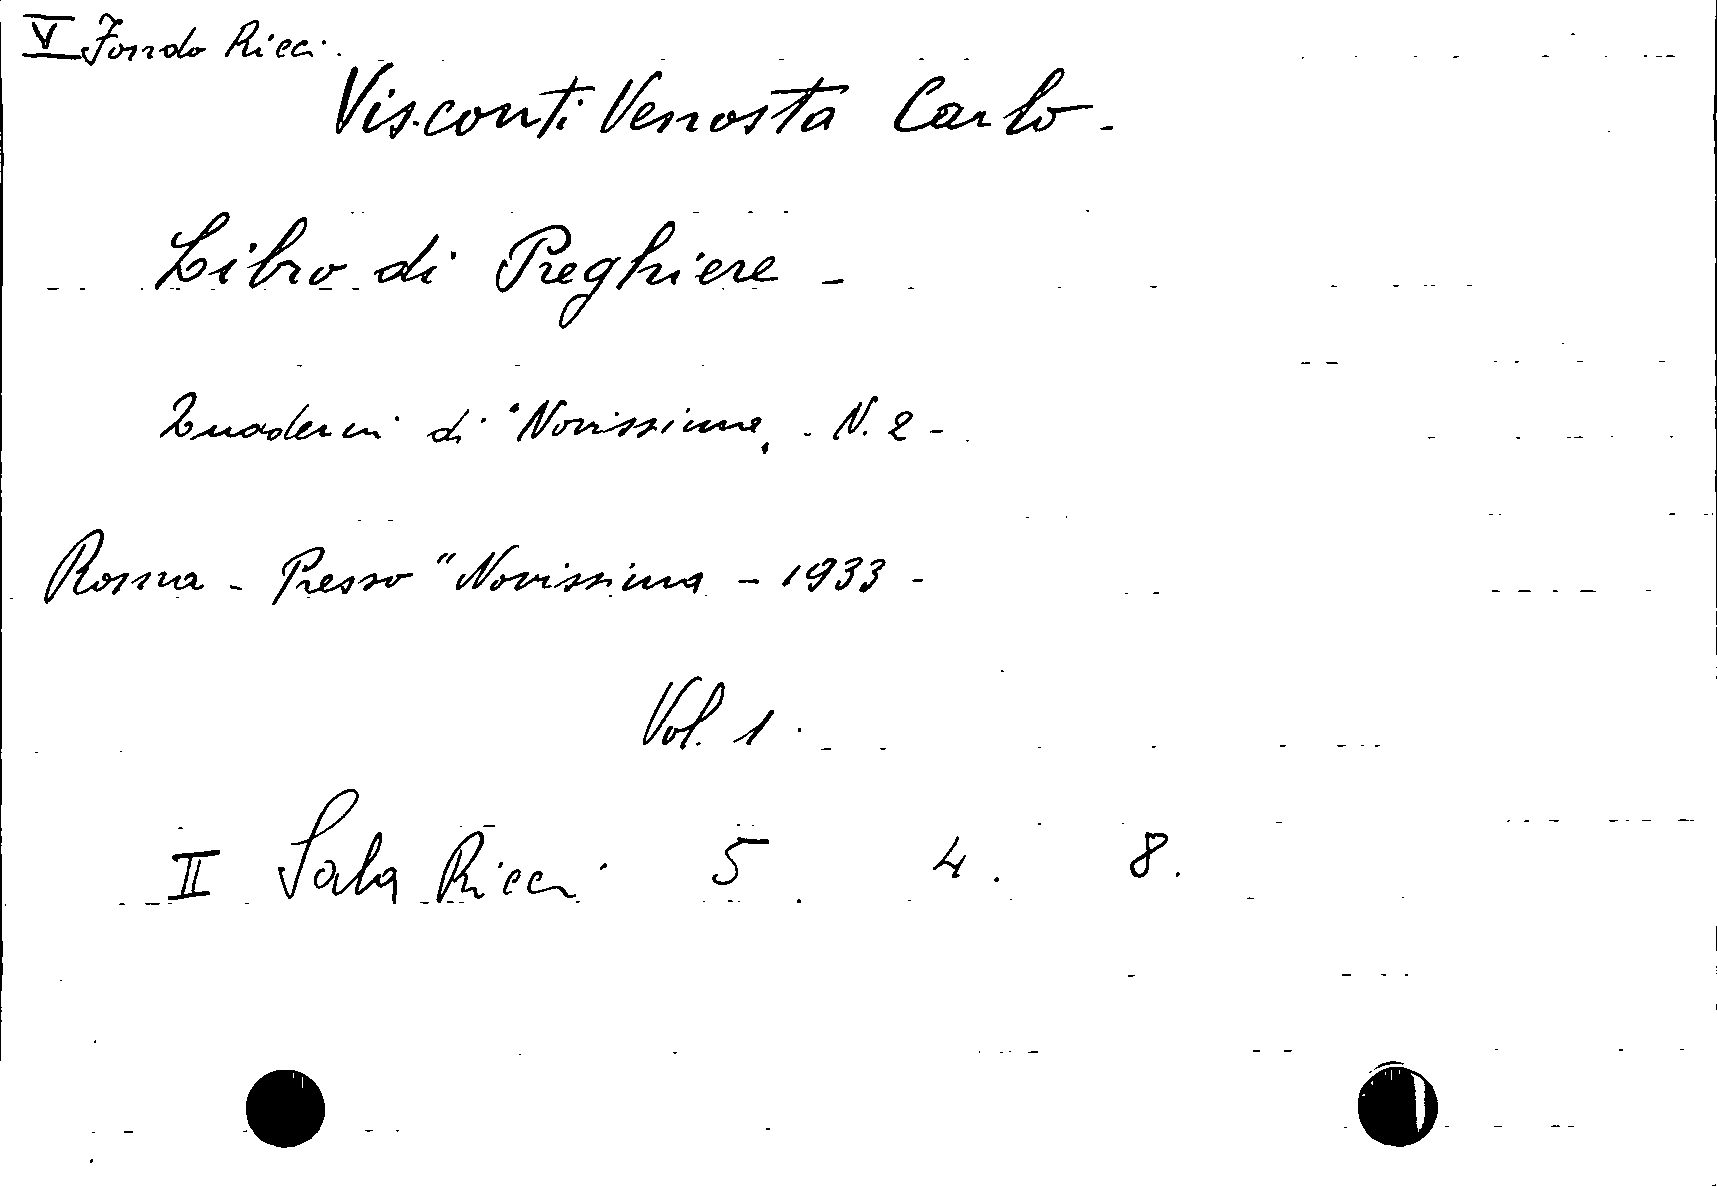 V Fondo Ricci.
Visconti Venosta Carlo -
Libro di Preghiere -
Quaderni di "Novissima„ - N. 2 -
Roma - Presso "Novissima - 1933 -
Vol. 1.
II Sala Ricci 5 4. 8.